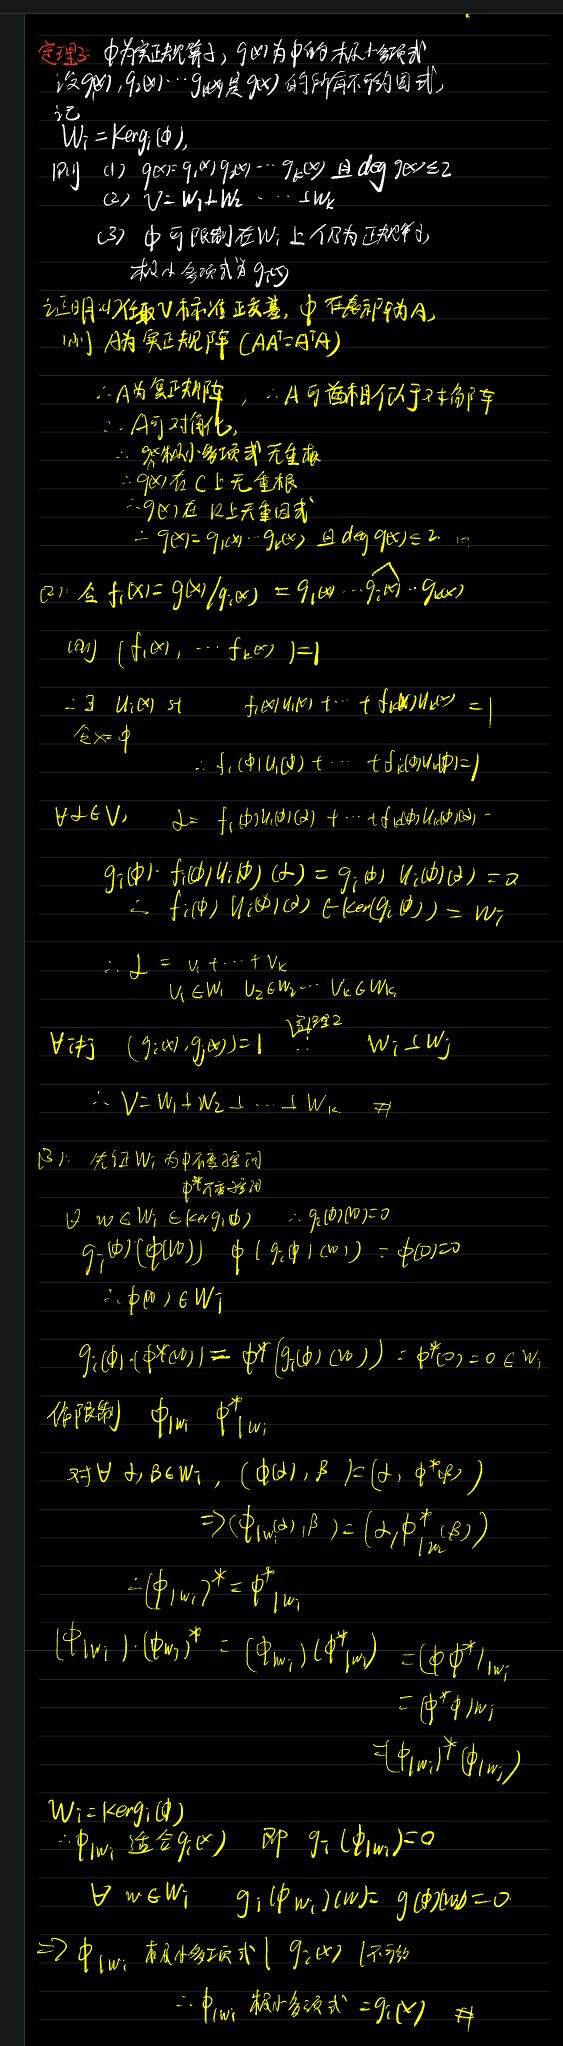 定理3: φ为实正规算子, g(x)为φ的极小多项式
设g₁(x), g₂(x)⋯gₖ(x)是g(x)的所有不可约因式,
记
Wᵢ=Ker gᵢ(φ),
则 (1) g(x)=g₁(x)g₂(x)⋯gₖ(x) 且deg g(x)≤2
(2) V=W₁⊥W₂ ⋯ ⊥Wₖ
(3) φ可限制在Wᵢ上仍为正规算子,
极小多项式为gᵢ(x)
证明(1)任取V标准正交基, φ在基下阵为A,
则 A为实正规阵 (AA'=A'A)
∴A为复正规阵, ∴A可酉相似于对角阵
∴A可对角化,
∴极小多项式无重根
∴g(x)在C上无重根
∴g(x)在R上无重因式
∴ g(x)=g₁(x)⋯gₖ(x) 且deg g(x)≤2.
(2) 令 fᵢ(x)=g(x)/gᵢ(x) = g₁(x)⋯ĝᵢ(x)⋯gₖ(x)
则 (f₁(x), ⋯fₖ(x))=1
∴∃ uᵢ(x) st f₁(x)u₁(x)+⋯+fₖ(x)uₖ(x)=1
令x=φ
∴ f₁(φ)u₁(φ)+⋯+fₖ(φ)uₖ(φ)=1
∀α∈V, α= f₁(φ)u₁(φ)(α)+⋯+fₖ(φ)uₖ(φ)(α)
gᵢ(φ)·fᵢ(φ)uᵢ(φ)(α)=g(φ)uᵢ(φ)(α)=0
∴ fᵢ(φ)uᵢ(φ)(α)∈Ker(gᵢ(φ))=Wᵢ
∴ α = v₁+⋯+vₖ
v₁∈W₁ v₂∈W₂⋯ vₖ∈Wₖ
∀i≠j (gᵢ(x),gⱼ(x))=1 引理2 ∴ Wᵢ⊥Wⱼ
∴V=W₁⊥W₂⊥⋯⊥Wₖ #
(3): 先证Wᵢ为φ不变空间
φ*不变空间
∀ w∈Wᵢ∈Ker gᵢ(φ) ∴gᵢ(φ)(w)=0
gᵢ(φ)(φ(w)) φ(gᵢ(φ)(w))=φ(0)=0
∴φ(w)∈Wᵢ
gᵢ(φ)·(φ*(w))=φ*(gᵢ(φ)(w))=φ*(0)=0∈Wᵢ
作限制 φ|wᵢ φ*|wᵢ
对∀ α,β∈Wᵢ, (φ(α),β)=(α,φ*(β))
⇒(φ|wᵢ(α),β)=(α,φ*|wᵢ(β))
∴(φ|wᵢ)*=φ*|wᵢ
(φ|wᵢ)·(φ|wᵢ)*=(φ|wᵢ)(φ*|wᵢ) =(φφ*)|wᵢ
=(φ*φ)|wᵢ
=(φ|wᵢ)*(φ|wᵢ)
Wᵢ=Ker gᵢ(φ)
∴φ|wᵢ 适合gᵢ(x) 即 gᵢ(φ|wᵢ)=0
∀ w∈Wᵢ gᵢ(φ|wᵢ)(w)=g(φ)(w)=0
⇒ φ|wᵢ 极小多项式 | gᵢ(x) 不可约
∴φ|wᵢ 极小多项式=gᵢ(x) #